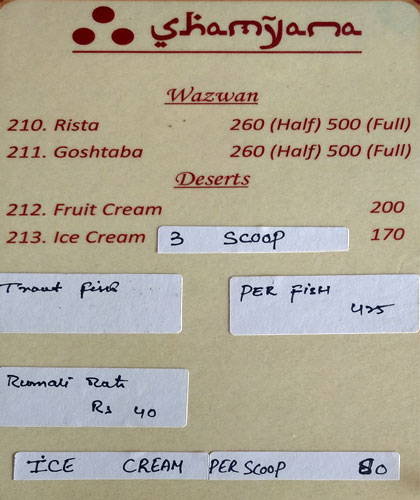 shamyana
Wazwan
210. Rista 260 (Half) 500 (Full)
211. Goshtaba 260 (Half) 500 (Full)
Deserts
212. Fruit Cream 200
213. Ice Cream 3 SCOOP 170
Trout fish PER FISH
425
Rumali Roti
Rs 40
ICE CREAM PER SCOOP 80